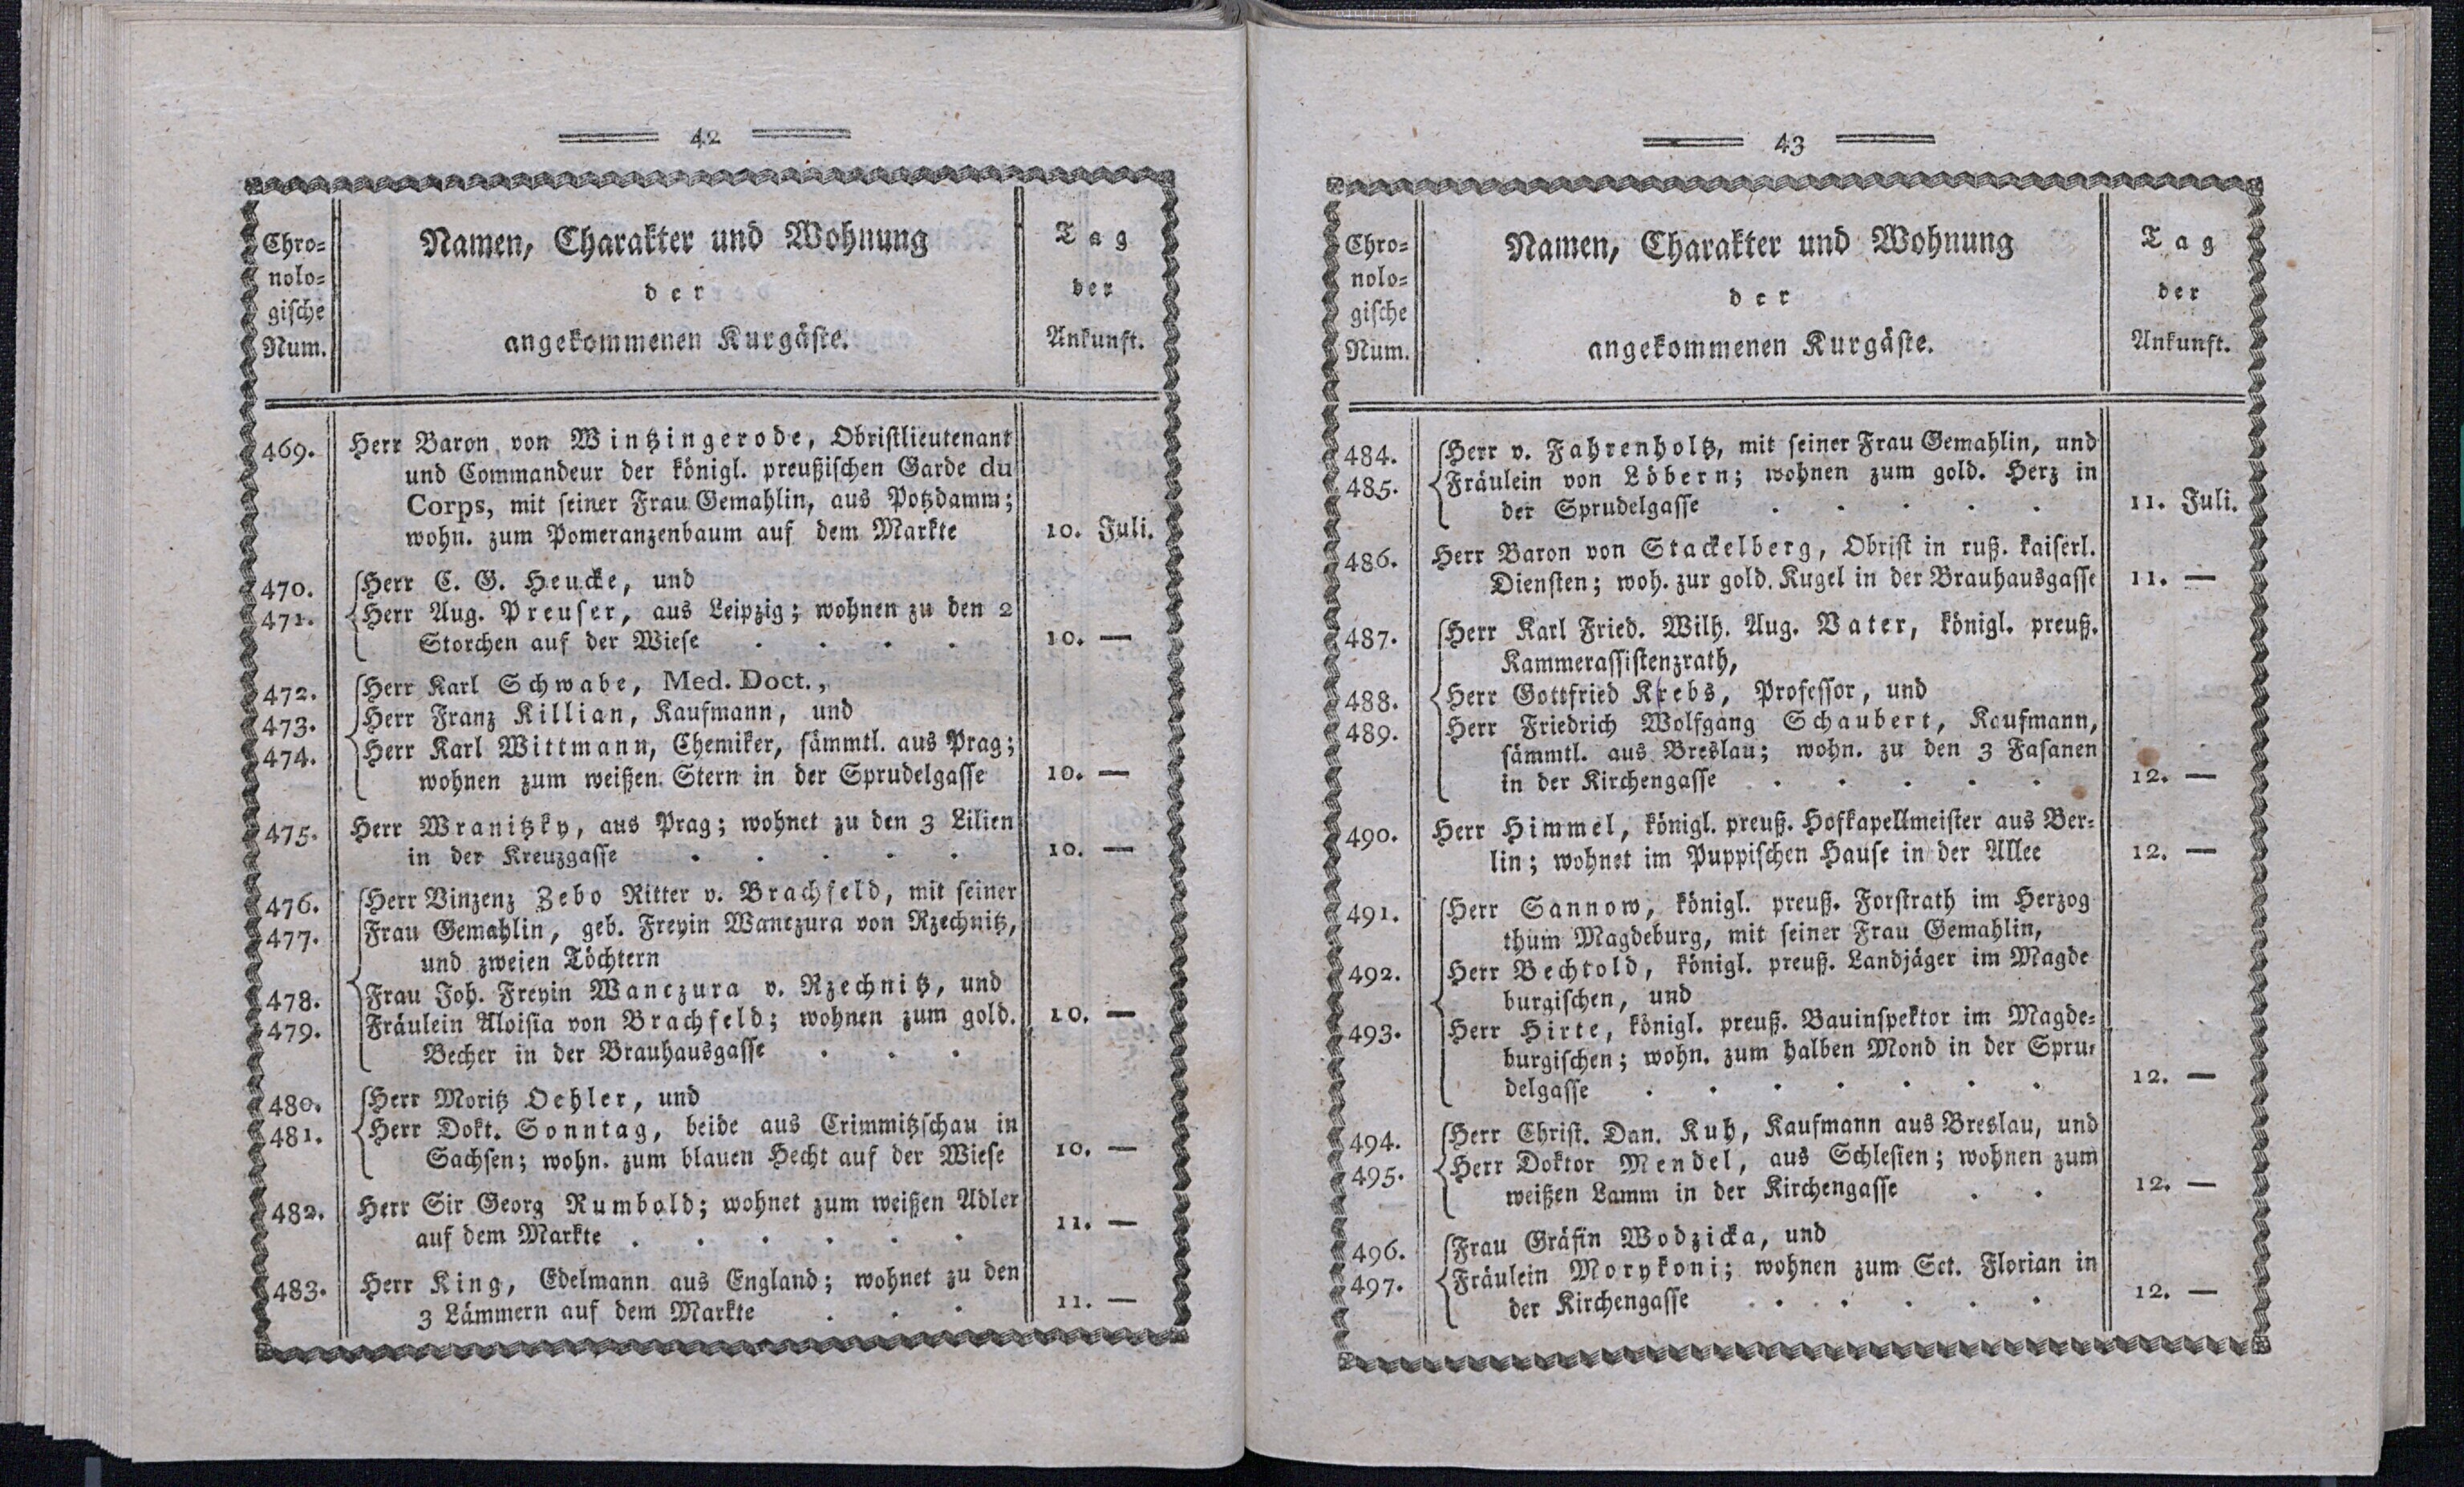 42
Chro-
nolo-
gische
Num.
Namen, Charakter und Wohnung
der
angekommenen Kurgäste.
Tag
der
Ankunft.
469. Herr Baron von Wintzingerode, Obristlieutenant
und Commandeur der königl. preußischen Garde du
Corps, mit seiner Frau Gemahlin, aus Potzdamm;
wohn. zum Pomeranzenbaum auf dem Markte 10. Juli.
470. Herr C. G. Heucke, und
471. Herr Aug. Preuser, aus Leipzig; wohnen zu den 2
Storchen auf der Wiese . . . . 10. —
472. Herr Karl Schwabe, Med. Doct.,
473. Herr Franz Killian, Kaufmann, und
474. Herr Karl Wittmann, Chemiker, sämmtl. aus Prag;
wohnen zum weißen Stern in der Sprudelgasse 10. —
475. Herr Wranitzky, aus Prag; wohnet zu den 3 Lilien
in der Kreuzgasse . . . . . 10. —
476. Herr Vinzenz Zebo Ritter v. Brachfeld, mit seiner
477. Frau Gemahlin, geb. Freyin Wanczura von Rzechnitz,
und zweien Töchtern
478. Frau Joh. Freyin Wanczura v. Rzechnitz, und
479. Fräulein Aloisia von Brachfeld; wohnen zum gold. 10. —
Becher in der Brauhausgasse . . .
480. Herr Moritz Oehler, und
481. Herr Dokt. Sonntag, beide aus Crimmitzschau in
Sachsen; wohn. zum blauen Hecht auf der Wiese 10. —
482. Herr Sir Georg Rumbold; wohnet zum weißen Adler
auf dem Markte . . . . . . 11. —
483. Herr King, Edelmann aus England; wohnet zu den
3 Lämmern auf dem Markte . . . 11. —
43
Chro-
nolo-
gische
Num.
Namen, Charakter und Wohnung
der
angekommenen Kurgäste.
Tag
der
Ankunft.
484. Herr v. Fahrenholtz, mit seiner Frau Gemahlin, und
485. Fräulein von Löbern; wohnen zum gold. Herz in
der Sprudelgasse . . . . . 11. Juli.
486. Herr Baron von Stackelberg, Obrist in ruß. kaiserl.
Diensten; woh. zur gold. Kugel in der Brauhausgasse 11. —
487. Herr Karl Fried. Wilh. Aug. Vater, königl. preuß.
Kammerassistenzrath,
488. Herr Gottfried Krebs, Professor, und
489. Herr Friedrich Wolfgang Schaubert, Kaufmann,
sämmtl. aus Breslau; wohn. zu den 3 Fasanen
in der Kirchengasse . . . . . 12. —
490. Herr Himmel, königl. preuß. Hofkapellmeister aus Ber-
lin; wohnet im Puppischen Hause in der Allee 12. —
491. Herr Sannow, königl. preuß. Forstrath im Herzog
thum Magdeburg, mit seiner Frau Gemahlin,
492. Herr Bechtold, königl. preuß. Landjäger im Magde
burgischen, und
493. Herr Hirte, königl. preuß. Bauinspektor im Magde-
burgischen; wohn. zum halben Mond in der Spru-
delgasse . . . . . . . 12. —
494. Herr Christ. Dan. Kuh, Kaufmann aus Breslau, und
495. Herr Doktor Mendel, aus Schlesien; wohnen zum
weißen Lamm in der Kirchengasse . . 12. —
496. Frau Gräfin Wodzicka, und
497. Fräulein Morykoni; wohnen zum Sct. Florian in
der Kirchengasse . . . . . 12. —